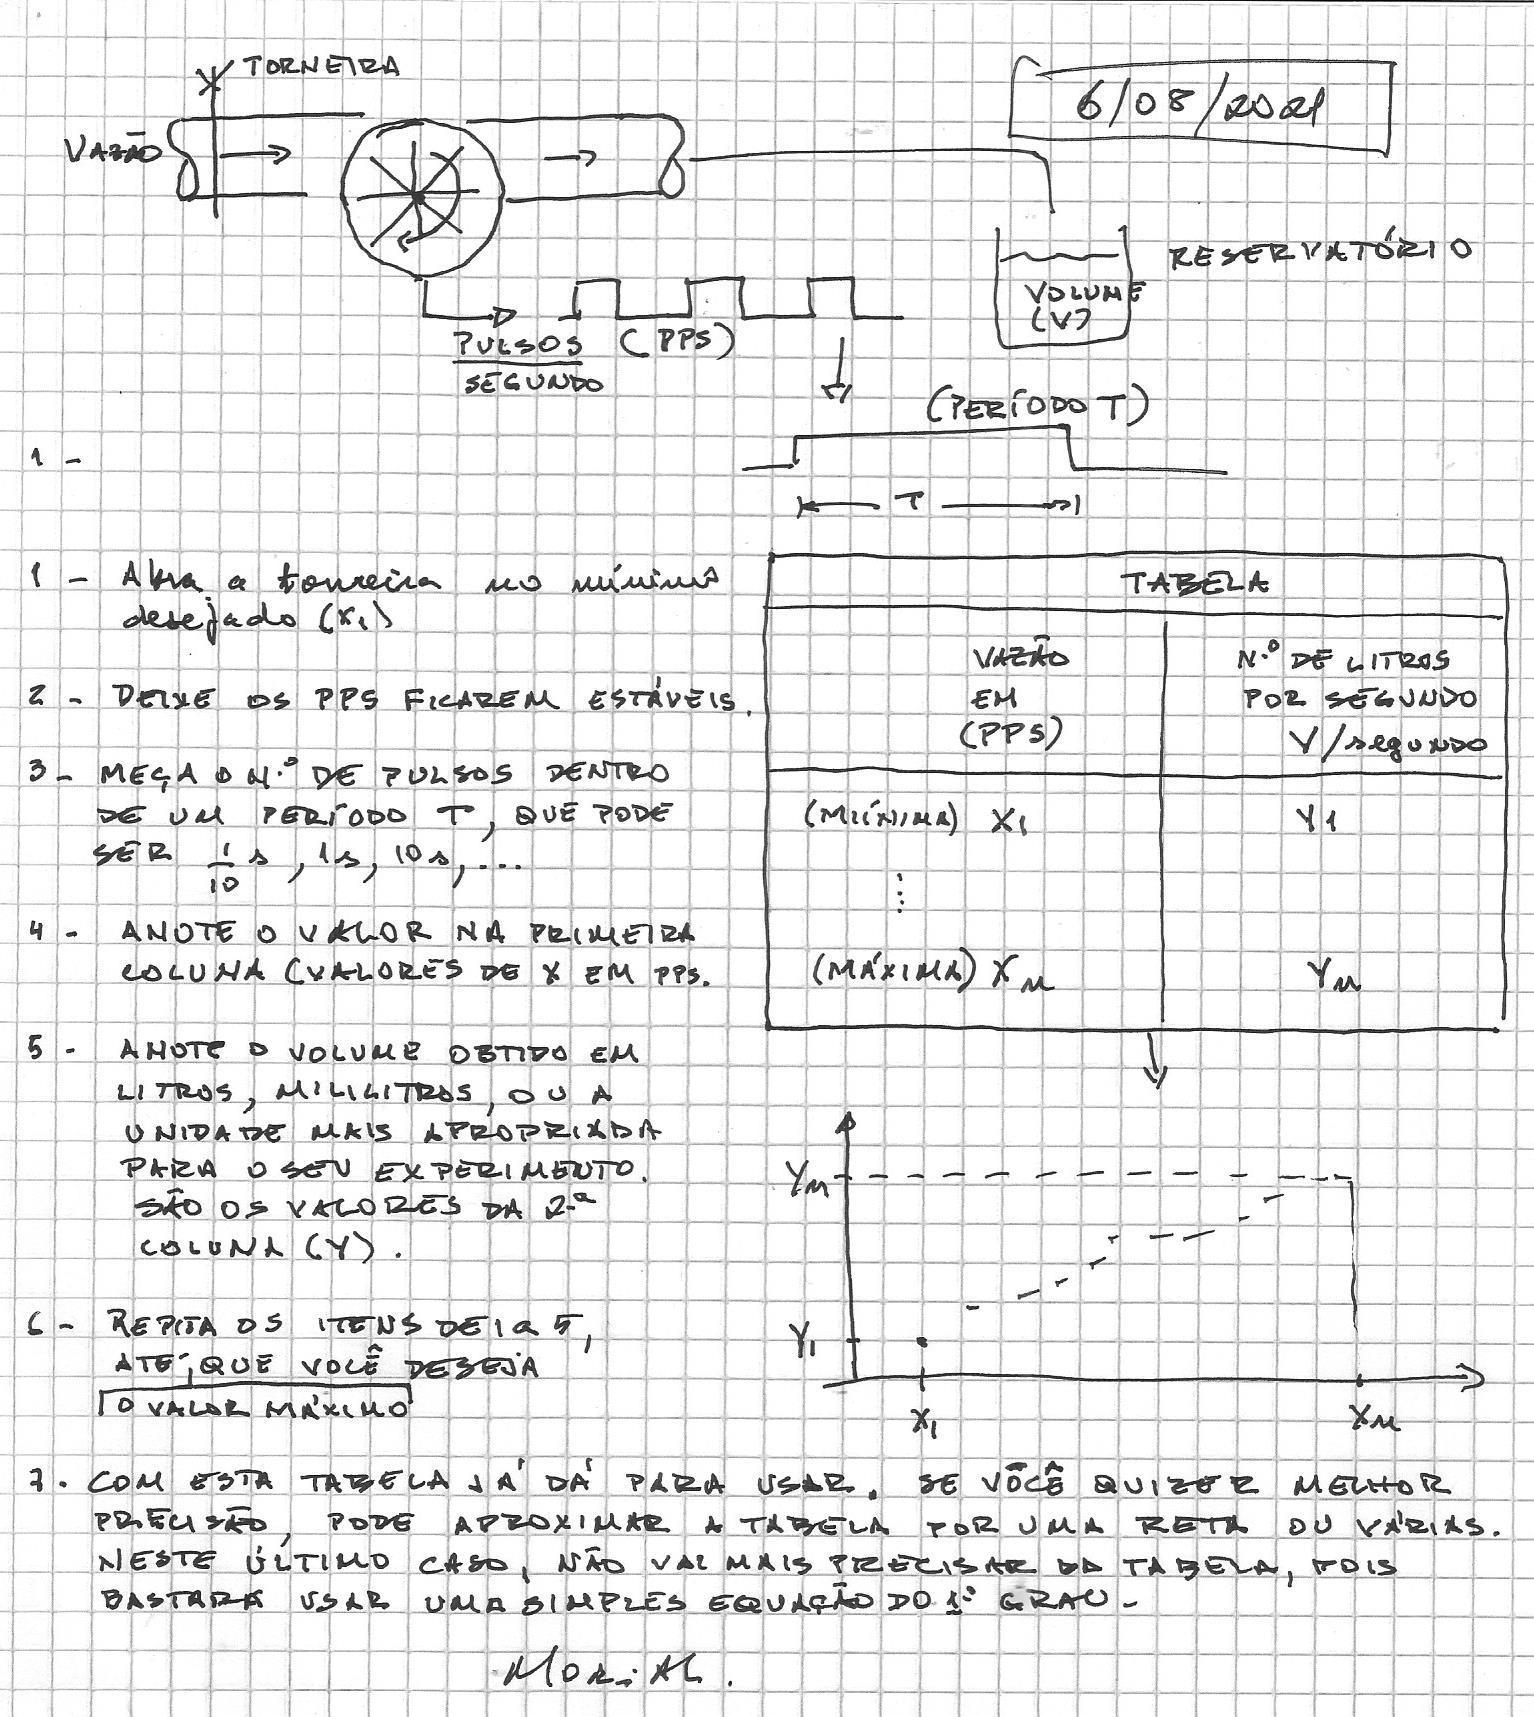 TORNEIRA
6/08/2021
VAZÃO
RESERVATÓRIO
VOLUME
(V)
PULSOS (PPS)
SEGUNDO
(PERÍODO T)
1 -
T
1 - Abra a torneira no mínimo
desejado (X1)
2 - DEIXE OS PPS FICAREM ESTÁVEIS.
3 - MEÇA O N.º DE PULSOS DENTRO
DE UM PERÍODO T, QUE PODE
SER 1/10 s, 1s, 10s, ...
4 - ANOTE O VALOR NA PRIMEIRA
COLUNA (VALORES DE X EM PPS.
5 - ANOTE O VOLUME OBTIDO EM
LITROS, MILILITROS, OU A
UNIDADE MAIS APROPRIADA
PARA O SEU EXPERIMENTO.
SÃO OS VALORES DA 2.ª
COLUNA (Y).
6 - REPITA OS ITENS DE 1 a 5,
ATÉ, QUE VOCÊ DESEJA
O VALOR MÁXIMO
TABELA
VAZÃO
EM
(PPS)
N.º DE LITROS
POR SEGUNDO
V/segundo
(MÍINIMA) X1 Y1
⋮
(MÁXIMA) XM YM
YM
Y1
X1 XM
7. COM ESTA TABELA JÁ DÁ PARA USAR. SE VOCÊ QUIZER MELHOR
PRECISÃO, PODE APROXIMAR A TABELA POR UMA RETA OU VÁRIAS.
NESTE ÚLTIMO CASO, NÃO VAI MAIS PRECISAR DA TABELA, POIS
BASTARÁ USAR UMA SIMPLES EQUAÇÃO DO 1º GRAU.